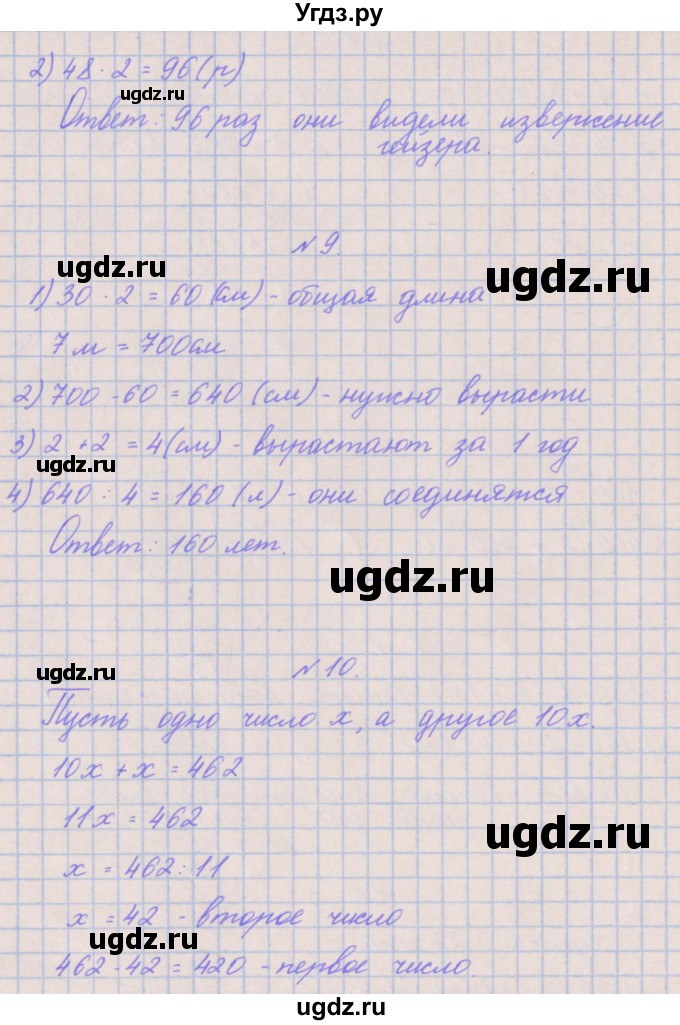 Угдз.ру
2) 48 · 2 = 96 (р)
ugdz.ru
Ответ: 96 раз они видели извержение
гейзера.
№ 9.
ugdz.ru
ugdz.ru
1) 30 · 2 = 60 (см) - общая длина
7 м = 700 см
2) 700 - 60 = 640 (см) - нужно вырасти
3) 2 + 2 = 4 (см) - вырастают за 1 год
ugdz.ru
4) 640 : 4 = 160 (л) - они соединятся
Ответ: 160 лет.
ugdz.ru
ugdz.ru
№ 10.
Пусть одно число х, а другое 10х.
10х + х = 462
11х = 462
ugdz.ru
х = 462 : 11
х = 42 - второе число
ugdz.ru
462 - 42 = 420 - первое число.
ugdz.ru